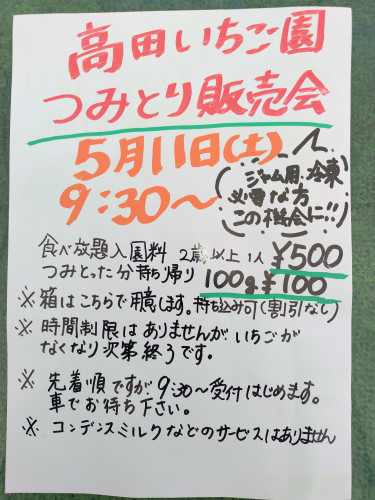 高田いちご園
つみとり販売会
5月11日(土)
9:30〜
ジャム用・冷凍
必要な方
この機会に!!
食べ放題入園料 2歳以上 1人 ¥500
つみとった分持ち帰り 100g ¥100
※ 箱はこちらで用意します。持ち込み可(割引なし)
※ 時間制限はありませんがいちごが
なくなり次第終了です。
※ 先着順ですが9:30〜受付はじめます。
車でお待ち下さい。
※ コンデンスミルクなどのサービスはありません